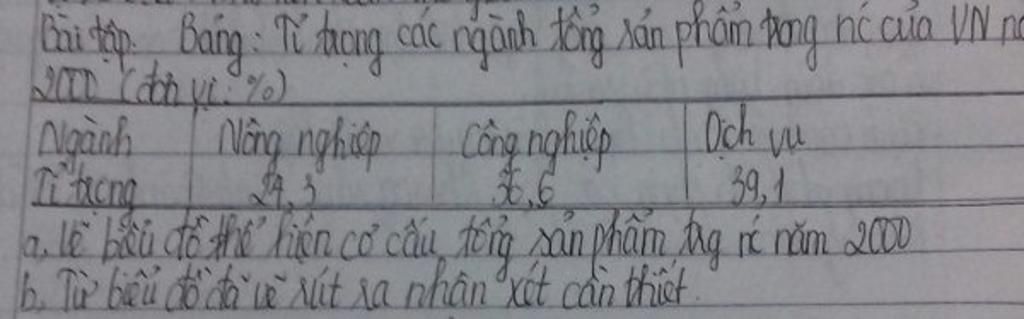 Bài tập. Bảng: Tỉ trọng các ngành tổng sản phẩm trong nc của VN
2000 (đơn vị: %)
Ngành Nông nghiệp Công nghiệp Dịch vụ
Tỉ trọng 24,3 36,6 39,1
a. Vẽ biểu đồ thể hiện cơ cấu tổng sản phẩm trg nc năm 2000
b. Từ biểu đồ đã vẽ rút ra nhận xét cần thiết.